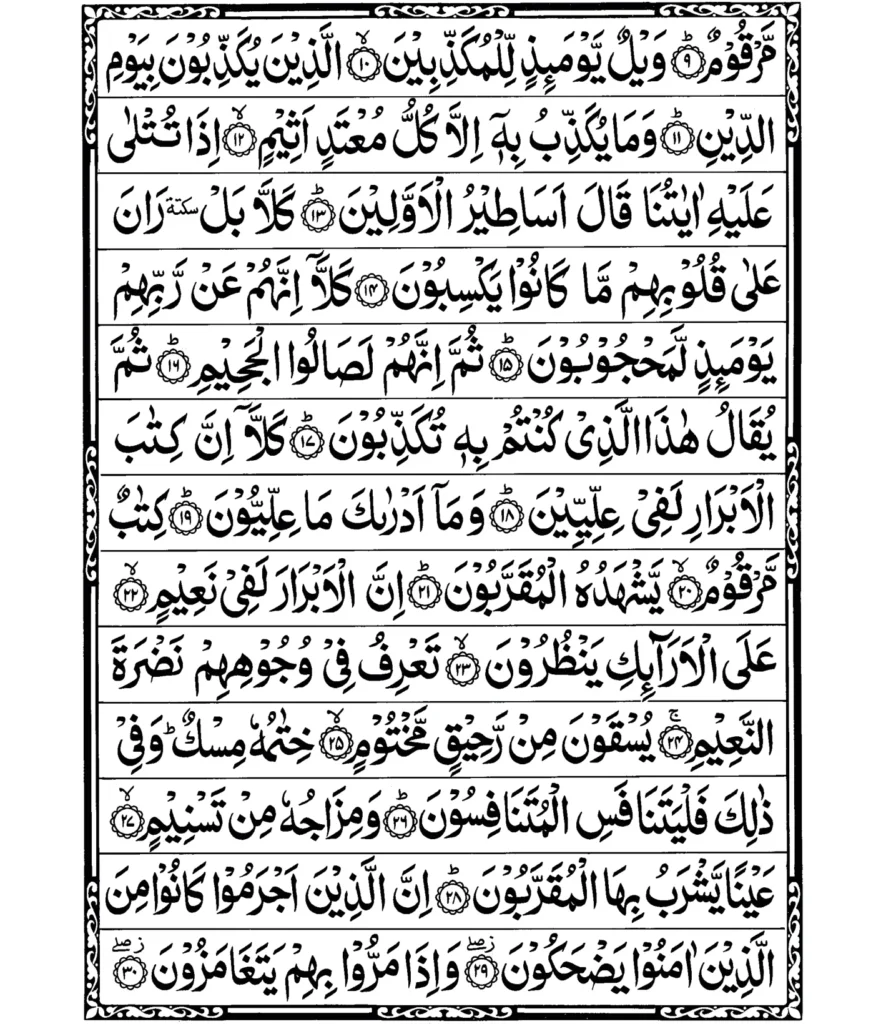 مَّرۡقُوۡمٌ ؕ‏﴿۹﴾ وَيۡلٌ يَّوۡمَٮِٕذٍ لِّلۡمُكَذِّبِيۡنَۙ‏ ﴿۱۰﴾ الَّذِيۡنَ يُكَذِّبُوۡنَ بِيَوۡمِ
الدِّيۡنِؕ‏ ﴿۱۱﴾ وَمَا يُكَذِّبُ بِهٖۤ اِلَّا كُلُّ مُعۡتَدٍ اَثِيۡمٍۙ‏ ﴿۱۲﴾ اِذَا تُتۡلٰى
عَلَيۡهِ اٰيٰتُنَا قَالَ اَسَاطِيۡرُ الۡاَوَّلِيۡنَؕ‏ ﴿۱۳﴾ كَلَّا بَلۡ سكتة رَانَ
عَلٰى قُلُوۡبِهِمۡ مَّا كَانُوۡا يَكۡسِبُوۡنَ‏ ﴿۱۴﴾ كَلَّاۤ اِنَّهُمۡ عَنۡ رَّبِّهِمۡ
يَوۡمَٮِٕذٍ لَّمَحۡجُوۡبُوۡنَؕ‏ ﴿۱۵﴾ ثُمَّ اِنَّهُمۡ لَصَالُوا الۡجَحِيۡمِؕ‏ ﴿۱۶﴾ ثُمَّ
يُقَالُ هٰذَا الَّذِىۡ كُنۡتُمۡ بِهٖ تُكَذِّبُوۡنَؕ‏ ﴿۱۷﴾ كَلَّاۤ اِنَّ كِتٰبَ
الۡاَبۡرَارِ لَفِىۡ عِلِّيِّيۡنَؕ‏ ﴿۱۸﴾ وَمَاۤ اَدۡرٰٮكَ مَا عِلِّيُّوۡنَؕ‏ ﴿۱۹﴾ كِتٰبٌ
مَّرۡقُوۡمٌۙ‏ ﴿۲۰﴾ يَّشۡهَدُهُ الۡمُقَرَّبُوۡنَؕ‏ ﴿۲۱﴾ اِنَّ الۡاَبۡرَارَ لَفِىۡ نَعِيۡمٍۙ‏ ﴿۲۲﴾
عَلَى الۡاَرَآٮِٕكِ يَنۡظُرُوۡنَۙ‏ ﴿۲۳﴾ تَعۡرِفُ فِىۡ وُجُوۡهِهِمۡ نَضۡرَةَ
النَّعِيۡمِۚ‏ ﴿۲۴﴾ يُسۡقَوۡنَ مِنۡ رَّحِيۡقٍ مَّخۡتُوۡمٍۙ‏ ﴿۲۵﴾ خِتٰمُهٗ مِسۡكٌ ؕ وَفِىۡ
ذٰلِكَ فَلۡيَتَنَافَسِ الۡمُتَنَافِسُوۡنَؕ‏ ﴿۲۶﴾ وَمِزَاجُهٗ مِنۡ تَسۡنِيۡمٍۙ‏ ﴿۲۷﴾
عَيۡنًا يَّشۡرَبُ بِهَا الۡمُقَرَّبُوۡنَؕ‏ ﴿۲۸﴾ اِنَّ الَّذِيۡنَ اَجۡرَمُوۡا كَانُوۡا مِنَ
الَّذِيۡنَ اٰمَنُوۡا يَضۡحَكُوۡنَ ز صلے‏ ﴿۲۹﴾ وَاِذَا مَرُّوۡا بِهِمۡ يَتَغَامَزُوۡنَ ز صلے‏ ﴿۳۰﴾